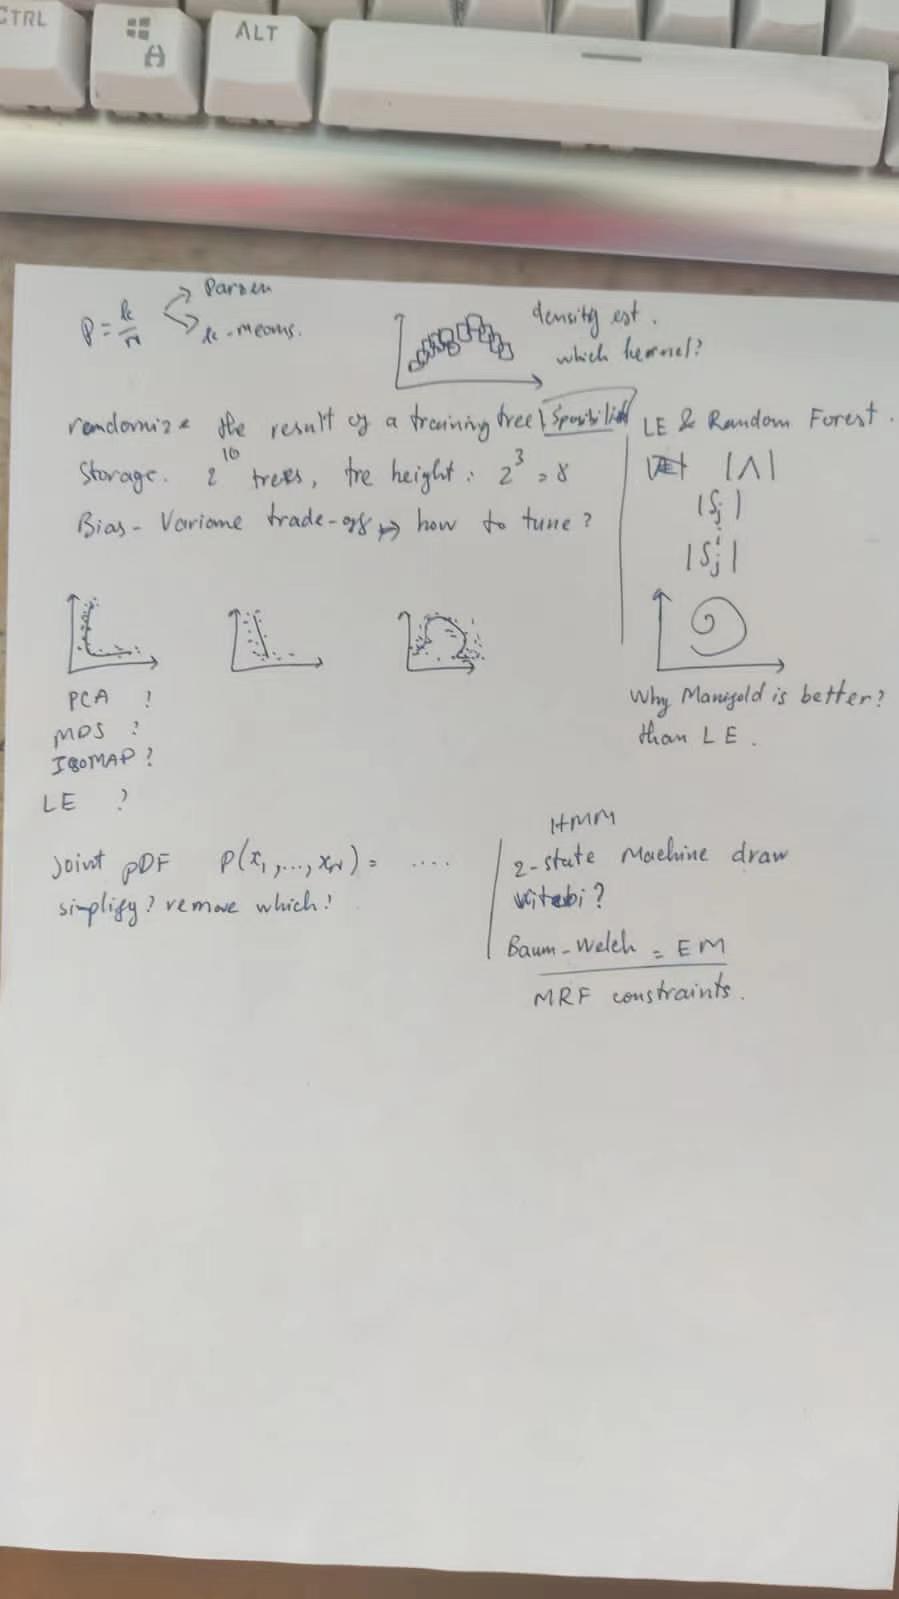 CTRL
ALT
P = k/n
Parzen
k-means.
density est.
which kernel?
randomize the result of a training tree
Storage. 2^10 trees, tre height: 2^3 = 8
Bias - Variance trade-off → how to tune?
LE & Random Forest.
|Λ|
|Sj|
|Sj^i|
Why Manifold is better?
than LE.
PCA ?
MDS ?
ISOMAP ?
LE ?
Joint PDF P(x1,...,xN) = ....
simplify? remove which?
HMM
2-state Machine draw
Baum-Welch = EM
MRF constraints.